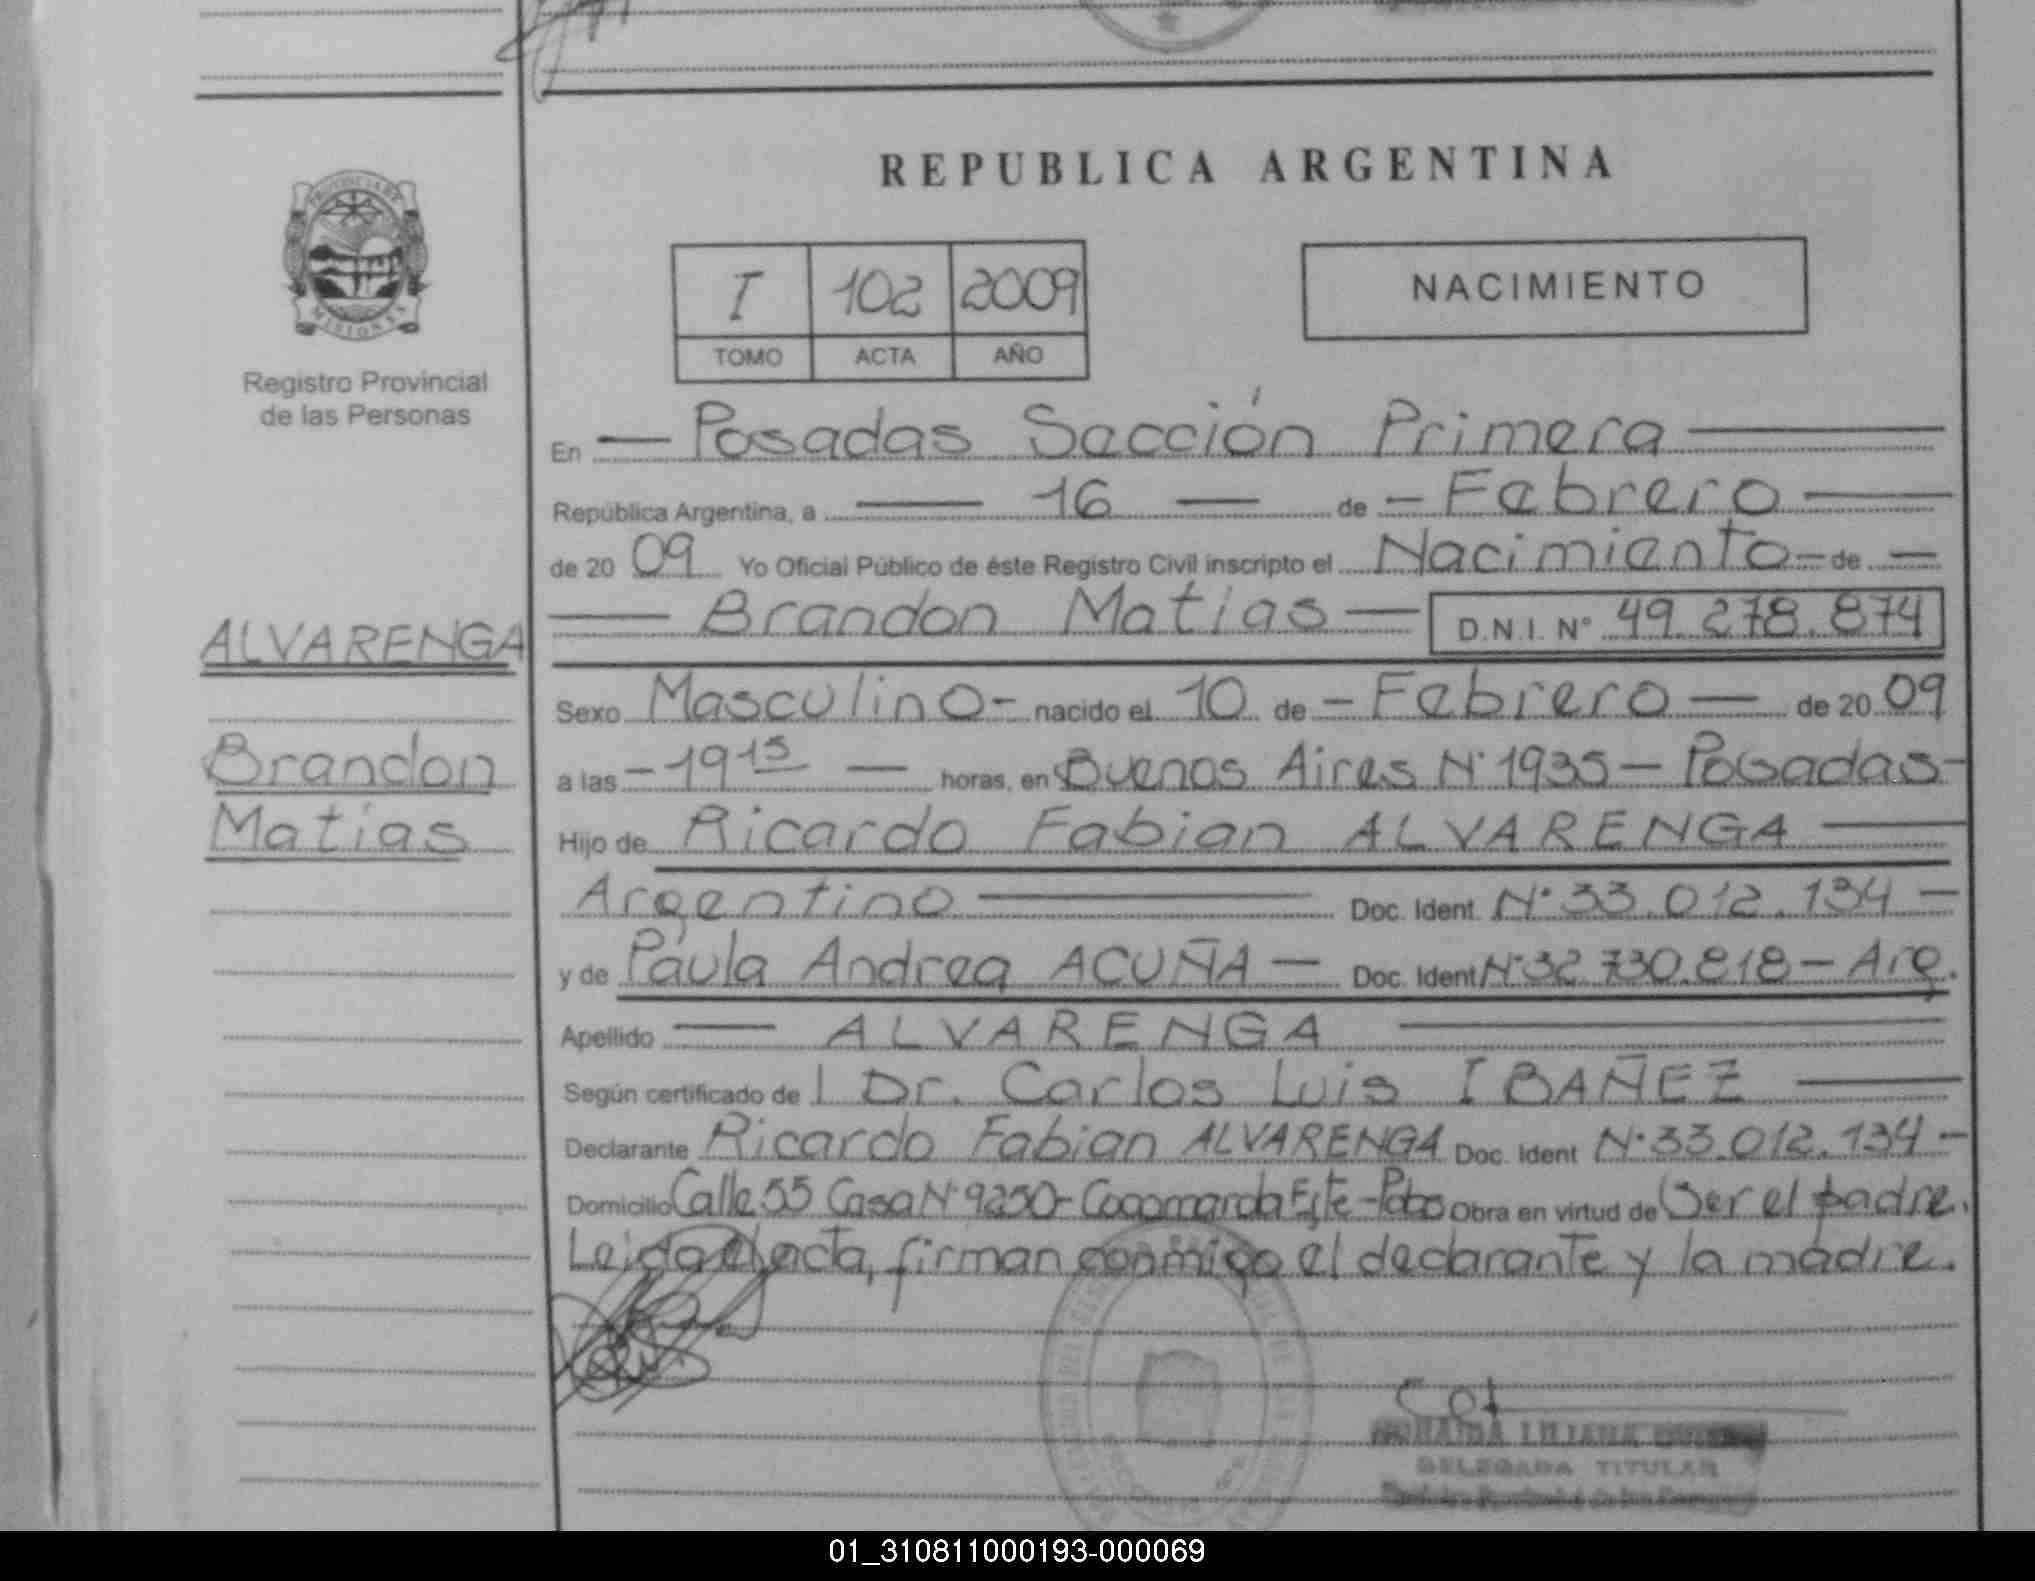 REPUBLICA ARGENTINA
PROVINCIA DE
MISIONES
Registro Provincial
de las Personas
I 102 2009
TOMO ACTA AÑO
NACIMIENTO
En Posadas Sección Primera
República Argentina, a 16 de Febrero
de 20 09 Yo Oficial Público de éste Registro Civil inscripto el Nacimiento de
Brandon Matias D.N.I. Nº 49.278.874
ALVARENGA
Brandon
Matías
Sexo Masculino - nacido el 10 de - Febrero - de 20 09
a las - 19 15 - horas, en Buenos Aires Nº 1935 - Posadas -
Hijo de Ricardo Fabian ALVARENGA
Argentino Doc. Ident. Nº 33.012.134 -
y de Paula Andrea ACUÑA - Doc. Ident Nº 32.730.818 - Arg.
Apellido ALVARENGA
Según certificado de Dr. Carlos Luis IBAÑEZ
Declarante Ricardo Fabian ALVARENGA Doc. Ident Nº 33.012.134 -
Domicilio Calle 55 Casa Nº 9250 - Este - Obra en virtud de Ser el padre.
Leida el acta, firman conmigo el declarante y la madre.
LILIANA
DELEGADA TITULAR
01_310811000193-000069